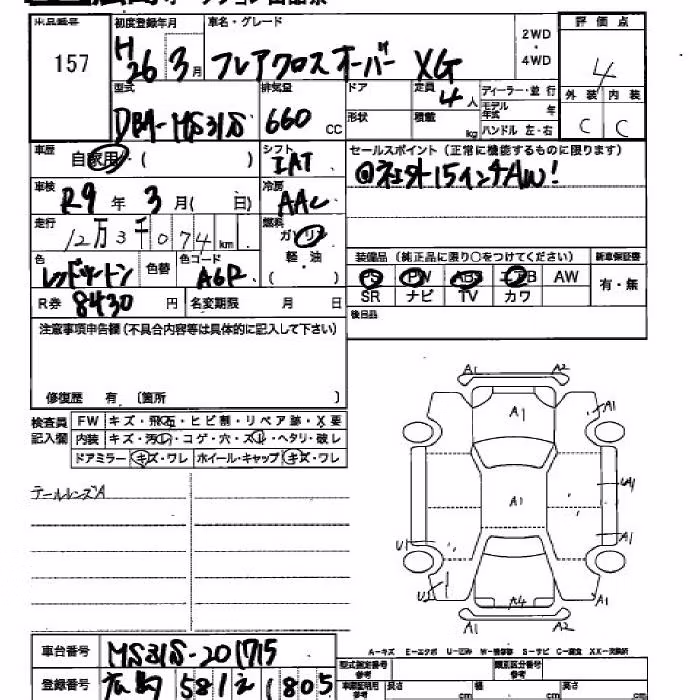 出品番号 初度登録年月 車名・グレード 評価点
157 H26 3月 フレアクロスオーバー XG 2WD・4WD 4
型式 排気量 ドア 定員 4人 ディーラー・並行 外装 内装
DBA-MS31S 660 CC 形状 積載 kg モデル年式 年 C C
ハンドル 左・右
車歴 自家用・( ) シフト IAT セールスポイント(正常に機能するものに限ります)
車検 R9年 3月( 日) 冷房 AAC ◎社外15インチAW!
走行 12万3千074km 燃料 ガソリン
軽・油
( )
色 レッドツートン 色替 色コード A6R 装備品(純正品に限り○をつけてください) 新車保証書
PS PW ABS エアB AW 有・無
R券 8430円 名変期限 月 日 SR ナビ TV カワ
後日品
注意事項申告欄(不具合内容等は具体的に記入して下さい)
修復歴 有 〔箇所 〕
検査員記入欄 FW キズ・飛石・ヒビ割・リペア跡・X要
内装 キズ・汚レ・コゲ・穴・スレ・ヘタリ・破レ
ドアミラー キズ・ワレ ホイール・キャップ キズ・ワレ
テールレンズA
A1 A2
A1 A1
A1 UA1
U1 A1
U2 A4 A1
A1 A2
A-キズ E-エクボ U-凹み W-補修跡 S-サビ C-腐食 XX-交換済
車台番号 MS31S-201715 型式指定番号 参考 類別区分番号 参考
登録番号 広島 581 1805 長さ cm 幅 cm 高さ cm